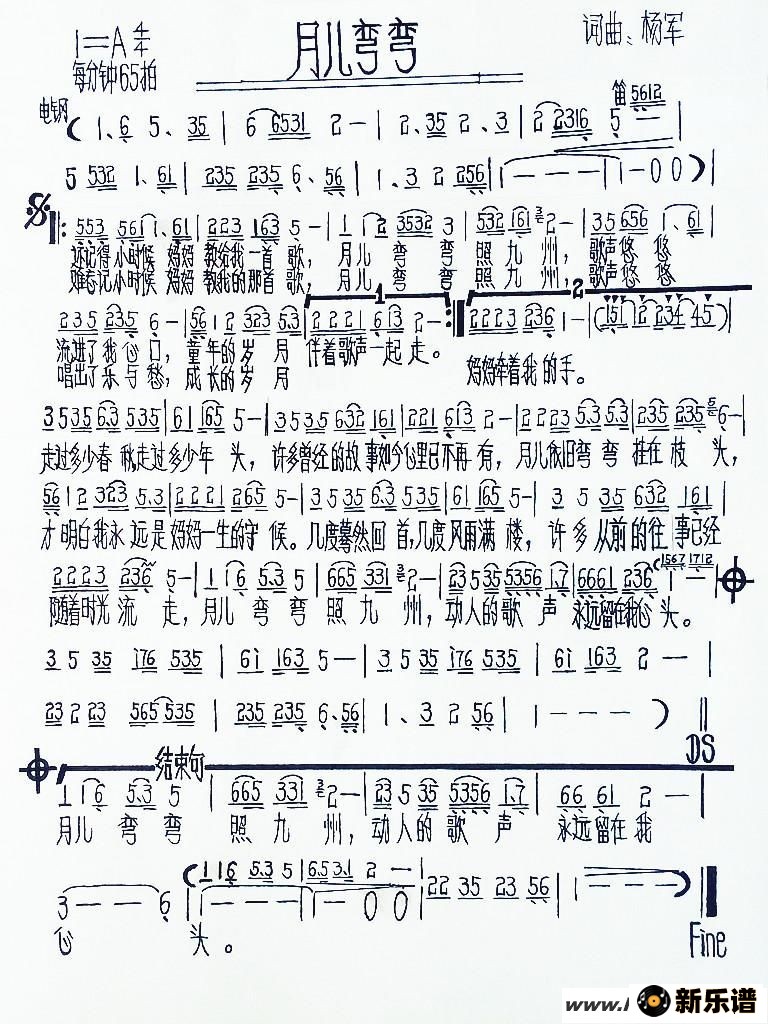 月儿弯弯
词曲：杨军
1=A 4/4
每分钟65拍
电钢
笛 5612
( 1、6 5、35 | 6 6531 2 — | 2、35 2、3 | 2 2316 5 —
5 532 1、61 | 235 235 6、56 | 1、3 2 256 | 1 — — — | 1 — 0 0 ) |
553 5611、61 | 223 163 5 — | 1 1 2 3532 3 | 532 161 2 — | 35 656 1、61
还记得小时候 妈妈 教给我一首 歌， 月儿 弯 弯 照九州， 歌声悠 悠
难忘记小时候 妈妈 教我的那首 歌， 月儿 弯 弯 照九州， 歌声悠 悠
1 2
235 235 6 — | 56 12 323 5.3 | 2221 613 2 — :|| 2223 236 1 — | (151 12 234 45) |
流进了我心门， 童年的岁月 伴着歌声一起走。 妈妈牵着我的手。
唱出了乐与愁， 成长的岁月
3535 6.3 535 | 61 165 5 — | 3535 632 161 | 221 613 2 — | 2223 5.3 5.3 | 235 235 6 — |
走过多少春 秋，走过多少年 头， 许多曾经的故事如今心里已不再有， 月儿依旧弯 弯 挂在枝 头，
56 12 323 5.3 | 2221 265 5 — | 3535 6.3 535 | 61 165 5 — | 3 5 35 632 161 |
才明白我永远是妈妈一生的守 候。 几度蓦然回 首，几度风雨满 楼， 许多从前的往事已经
2223 236 5 — | 116 5.3 5 | 665 331 2 — | 23 535 5356 1.7 | 6661 236 1 — 1567 1712
随着时光 流 走， 月儿 弯 弯 照 九 州， 动人的歌 声 永远留在我心头。
3 5 35 i76 535 | 6i 163 5 — | 3 5 35 i76 535 | 6i 163 2 — |
23 2 23 565 535 | 235 235 6、56 | 1、3 2 56 | 1 — — — ) ||
DS
结束句
116 5.3 5 | 665 331 2 — | 23 5 35 5356 1.7 | 66 61 2 — |
月儿 弯 弯 照 九 州， 动人的歌 声 永远留在我
(116 5.3 5 | 6.5 3.1 2 —
3 — — 6 | 1 — — — | 1 — 0 0 | 22 35 23 56 | 1 — — — ) ||
心 头。
Fine
新乐谱